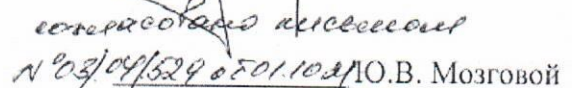 согласовано письмом
№03/04/529 от 01.10.21 Ю.В. Мозговой